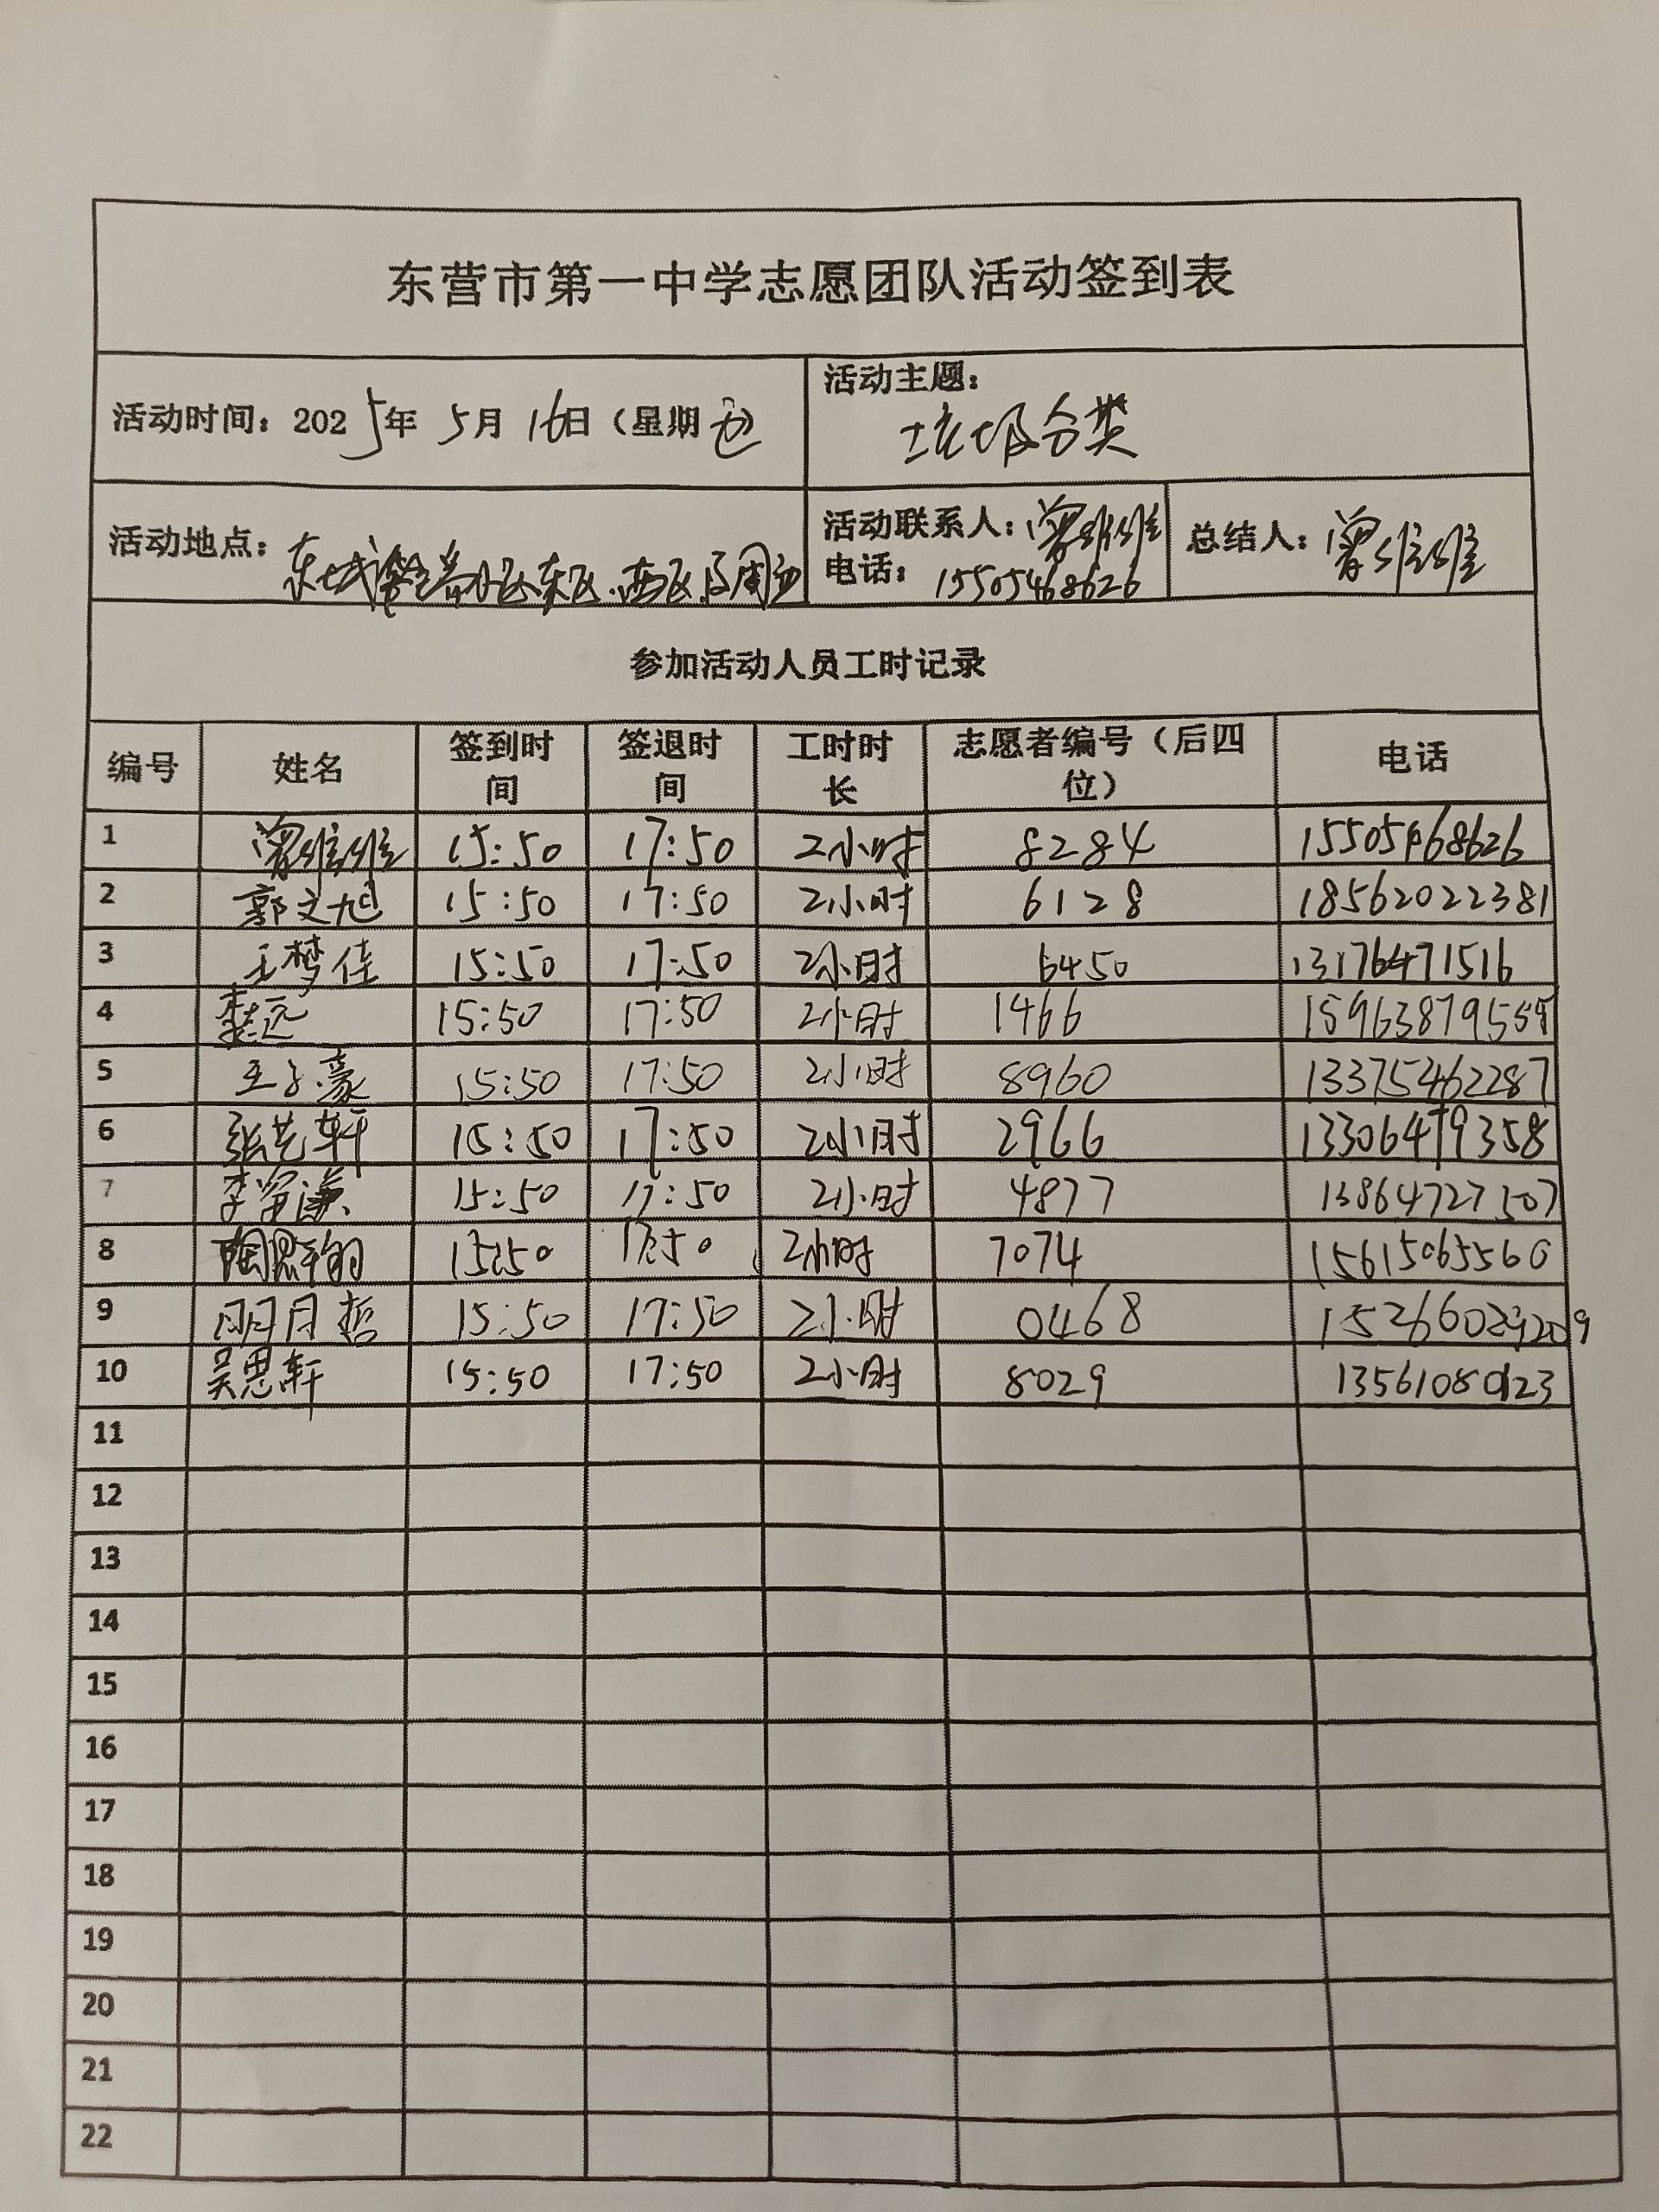 东营市第一中学志愿团队活动签到表
活动时间：2025年 5月 16日（星期五）
活动主题：
垃圾分类
活动地点：东城 东区、西区及周边
活动联系人：曾维维
电话：15505468626
总结人：曾维维
参加活动人员工时记录
编号 姓名 签到时间 签退时间 工时时长 志愿者编号（后四位） 电话
1 曾维维 15:50 17:50 2小时 8284 15505468626
2 郭文旭 15:50 17:50 2小时 6128 18562022381
3 王梦佳 15:50 17:50 2小时 6450 13176471516
4 15:50 17:50 2小时 1466
5 王子豪 15:50 17:50 2小时 8960 13375462287
6 张艺轩 15:50 17:50 2小时 2966 13306479358
7 15:50 17:50 2小时 4877 13864727507
8 15:50 17:50 2小时 7074 15615065560
9 15:50 17:50 2小时 0468
10 吴思轩 15:50 17:50 2小时 8029 13561080123
11
12
13
14
15
16
17
18
19
20
21
22